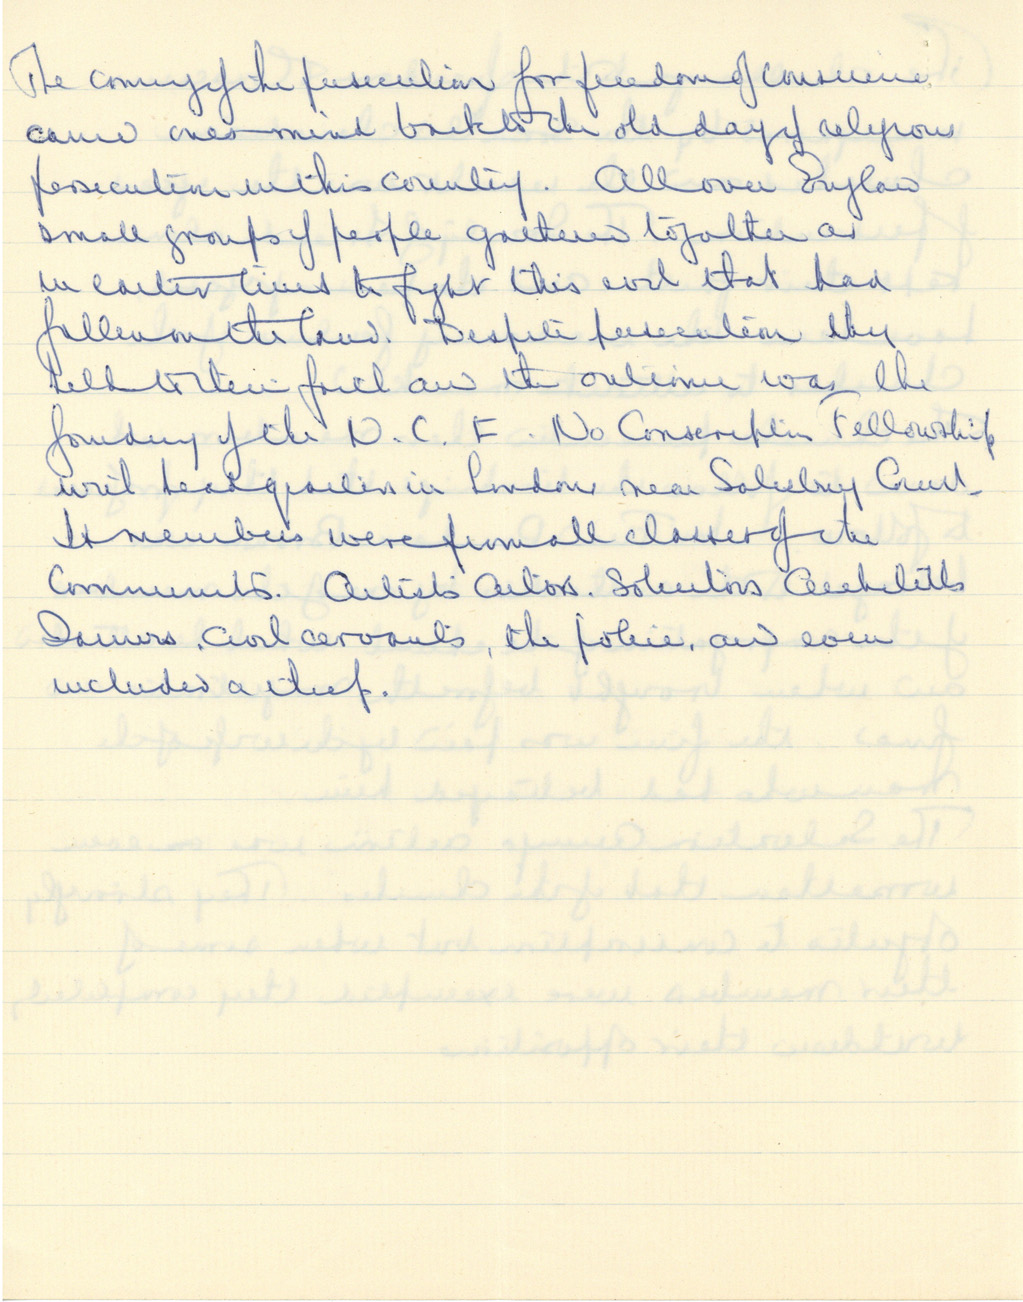 The coming of the persecution for freedom of conscience
came ones mind back to the old days of religious
persecution in this country. All over England
small groups of people gathered together as
in earlier times to fight this evil that had
fallen on the land. Despite persecution they
held to their faith and the outcome was the
founding of the N. C. F. No Conscription Fellowship
with headquarters in London near Salisbury Court.
Its members were from all classes of the
Community. Artists Actors. Solicitors Architects
civil servants, the police, and even
included a thief.